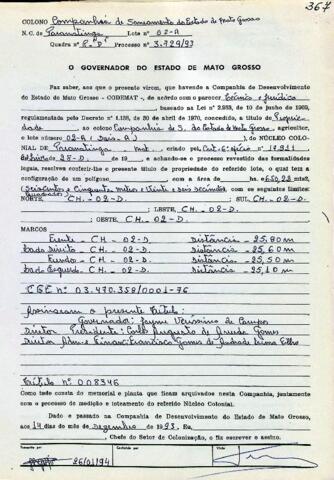 367
COLONO Companhia de Saneamento do Estado de Mato Grosso
N.C. de Paranatinga Lote nº 02-A
Quadra nº P."D" Processo 3.929/93
O GOVERNADOR DO ESTADO DE MATO GROSSO
Faz saber, aos que o presente virem, que havendo a Companhia de Desenvolvimento
do Estado de Mato Grosso - CODEMAT -, de acordo com o parecer Técnico e Jurídico
baseado na Lei nº 2.983, de 10 de junho de 1969,
regulamentada pelo Decreto nº 1.138, de 20 de abril de 1970, concedido o título de Proprie
dade ao colono Companhia de S. do Estado de Mato Grosso, agricultor,
e lote número 02-A (Dois-A) do NÚCLEO COLO-
NIAL de Paranatinga Mat. criado pel Cert. 6º ofício nº 19.911
28-D. de 19 e achando-se o processo revestido das formalidades
legais, resolveu conferir-lhe o presente título de propriedade do referido lote, o qual tem a
configuração de um polígono com a área de ha 650,22 mts2
(Seiscentos e Cinquenta metros e Vinte e dois
quadrados) com os seguintes limites:
NORTE, CH-02-D. ; SUL, CH-02-D.
; LESTE, CH-02-D.
; OESTE, CH-02-D.
MARCOS
Frente - CH - 02-D. distância - 25,80 m
Lado Direito - CH - 02-D. distância - 25,60 m
Fundos - CH - 02-D. distância - 25,50 m
Lado Esquerdo - CH - 02-D. distância - 25,10 m
CGC nº 03.470.358/0001-76
Assinaram o presente título:
Governador: Jayme Veríssimo de Campos
Diretor Presidente: Carlos Augusto de Arruda Gomes
Diretor Adm. e Financ: Francisco Gomes de Andrade Lima Filho
Título nº 008346
Como tudo consta do memorial e planta que ficam arquivados nesta Companhia, juntamente
com o processo de medição e loteamento do referido Núcleo Colonial.
Dado e passado na Companhia de Desenvolvimento do Estado de Mato Grosso,
aos 14 dias do mês de Dezembro de 1993. Eu,
Chefe do Setor de Colonização, o fiz escrever e assino.
26/01/94